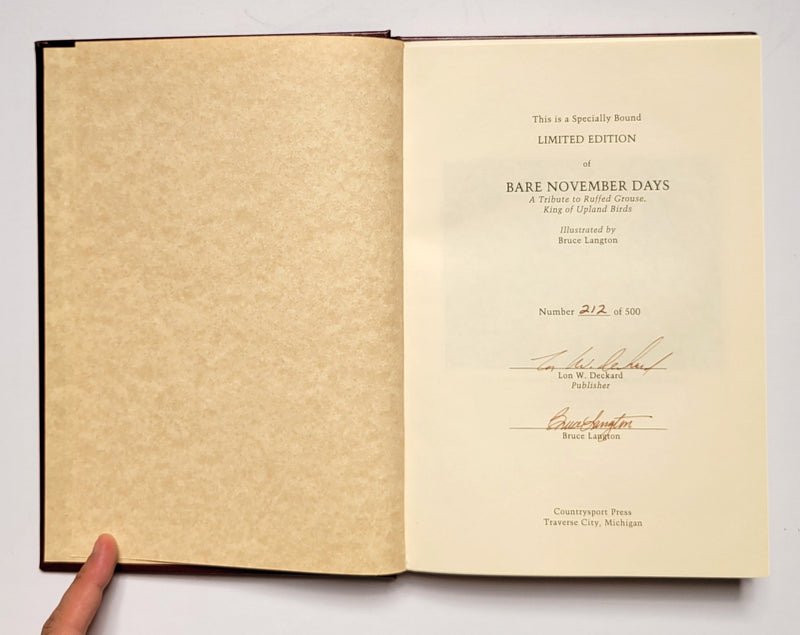 This is a Specially Bound
LIMITED EDITION
of
BARE NOVEMBER DAYS
A Tribute to Ruffed Grouse,
King of Upland Birds
Illustrated by
Bruce Langton
Number 212 of 500
Lon W. Deckard
Lon W. Deckard
Publisher
Bruce Langton
Bruce Langton
Countrysport Press
Traverse City, Michigan